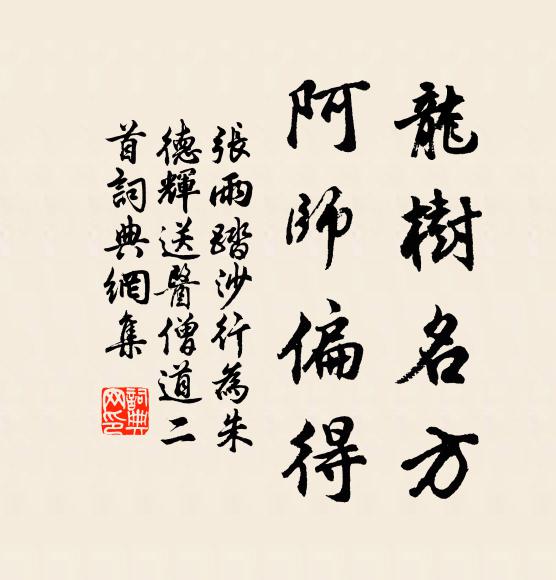 龍樹名方
阿師偏得
張雨踏沙行為朱
德輝送醫僧道二
首詞典網集
詞典網印